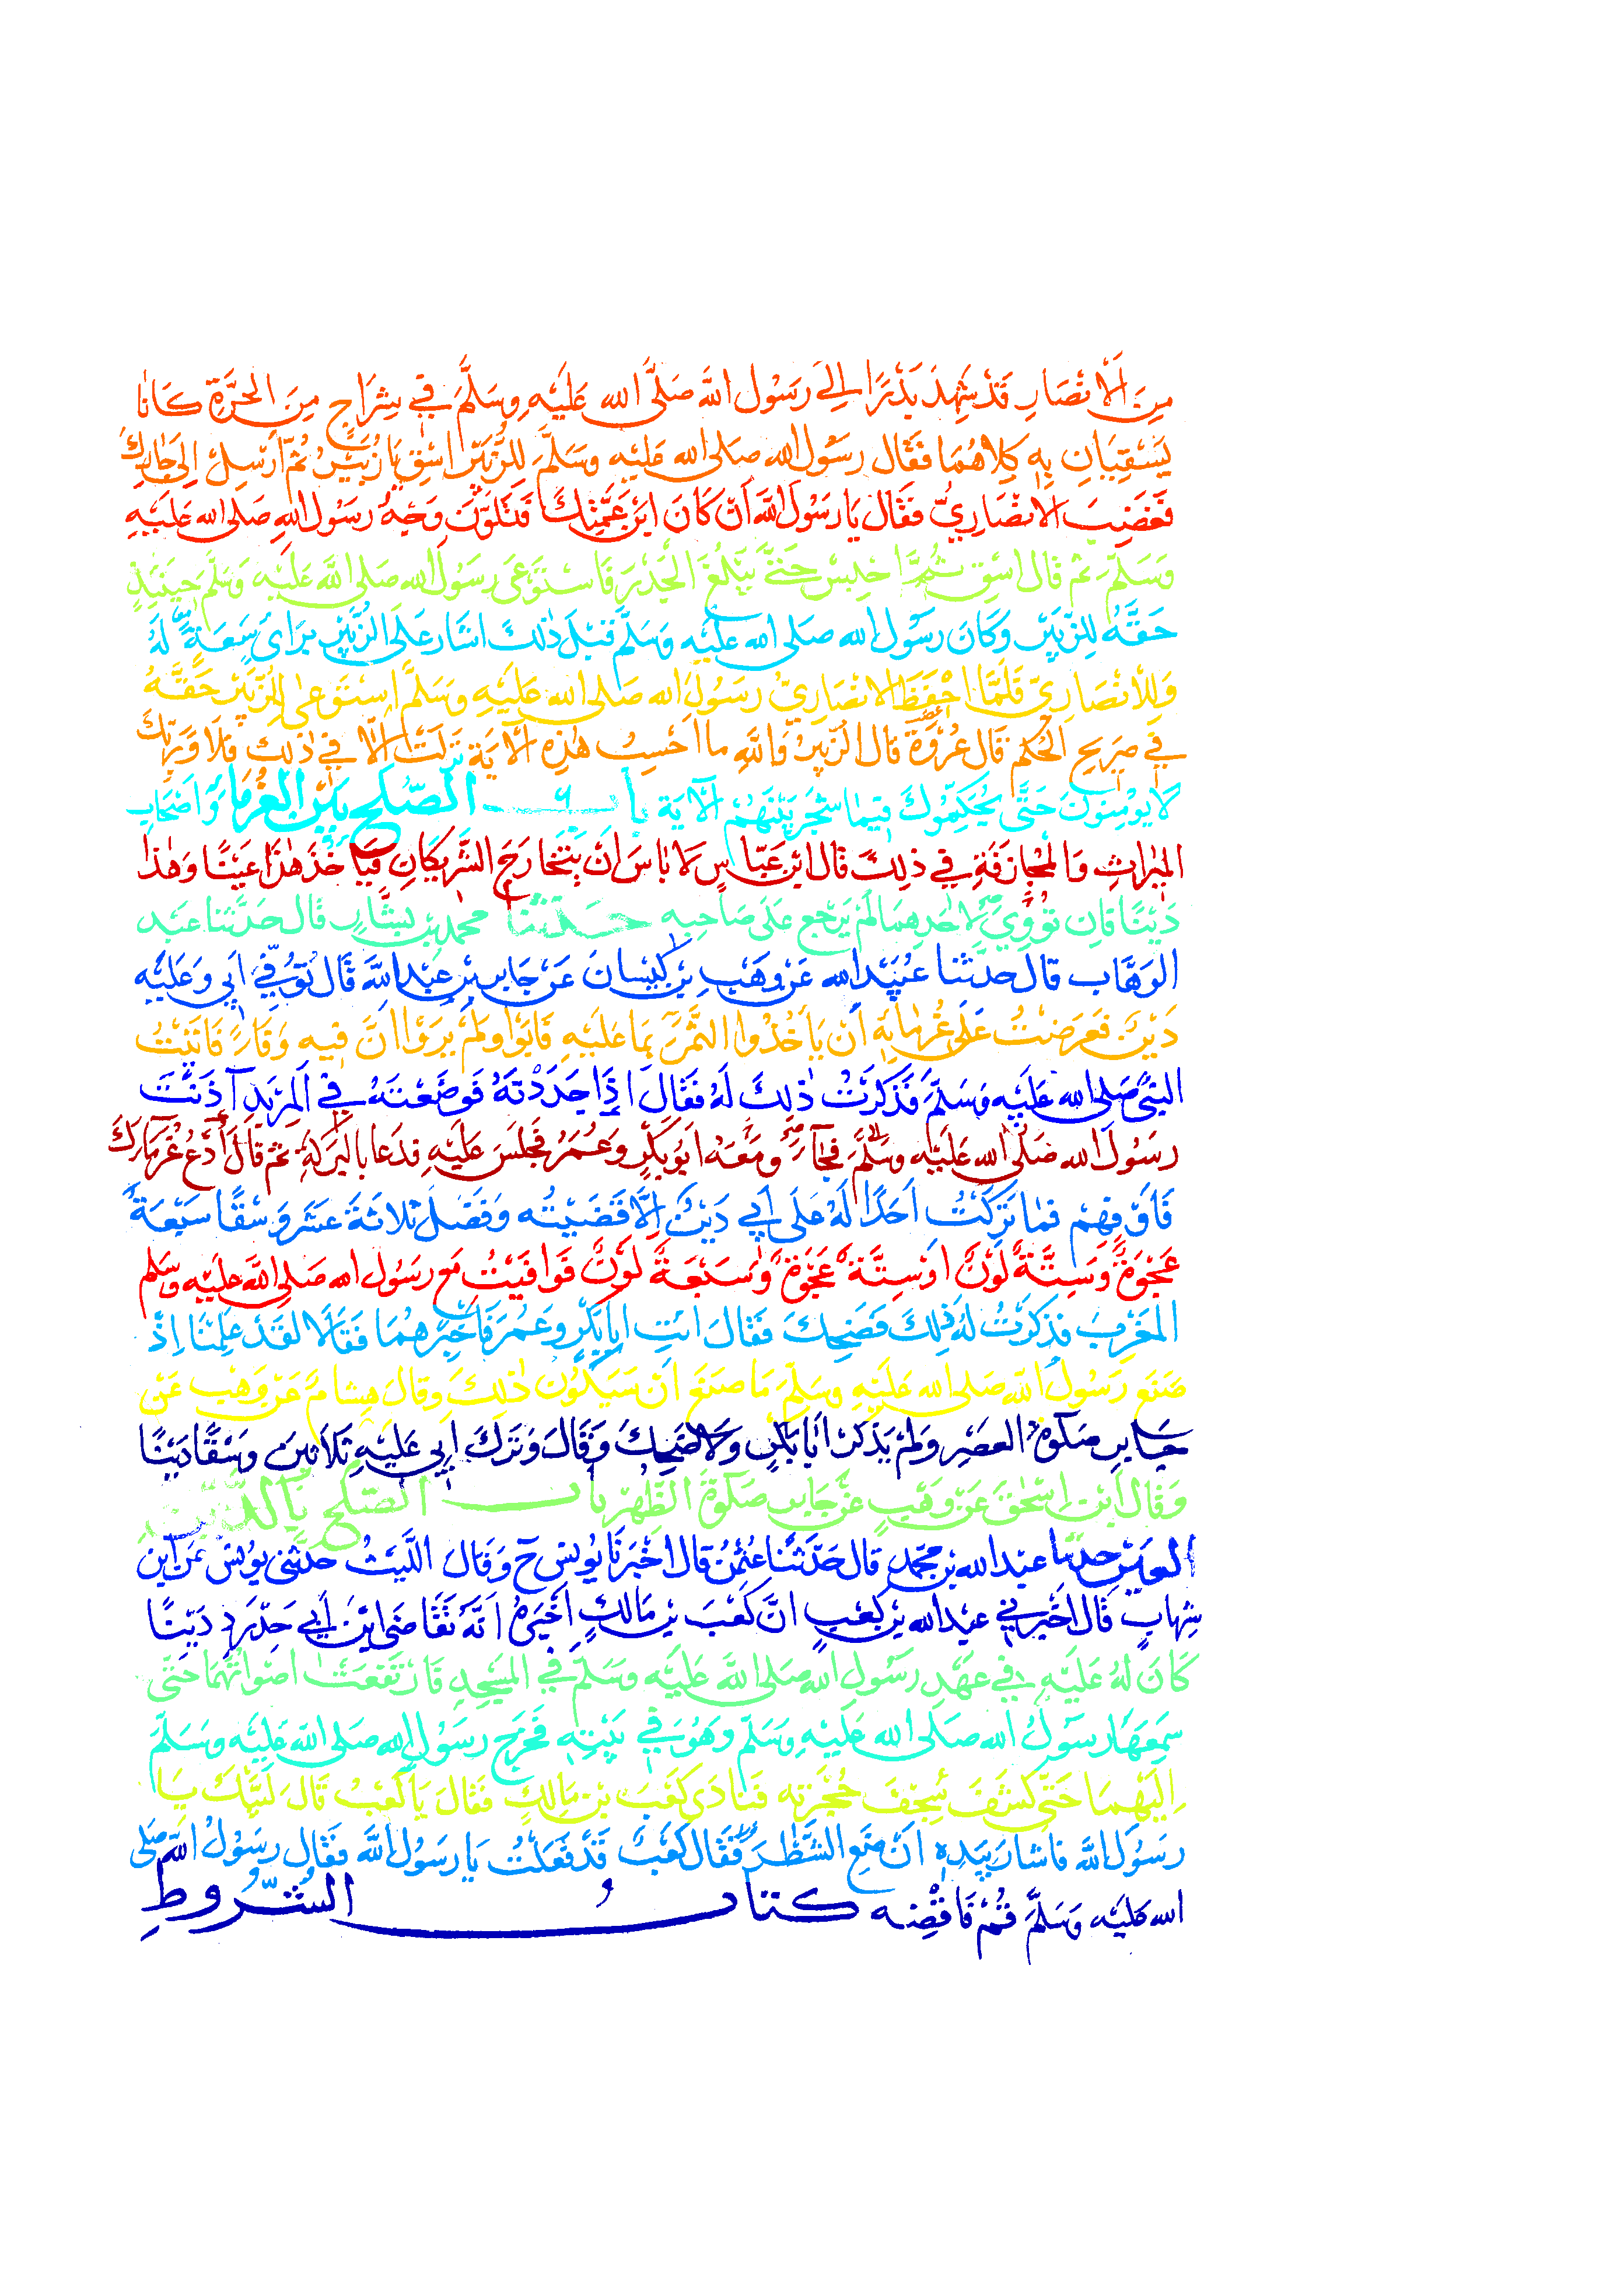 مِنَ الْاَنْصَارِ قَدْ شَهِدَ بَدْرًا اِلَى رَسُول اللَّه صَلَّى الله عَلَيْهِ وَسَلَّمَ فِي شِرَاجٍ مِنَ الحَرَّةِ كَانَا
يَسْقِيَانِ بِهِ كِلاهُمَا فَقَال رَسُول الله صَلى الله عَلَيْهِ وَسَلَّمَ لِلزُّبَيْرِ اسْقِ يَا زُبَيْرُ ثمَّ اَرْسِلْ اِلَى جَارِكَ
فَغَضِبَ الانْصَارِيُّ فَقَال يَا رَسُولَ اللَّه اَنْ كَانَ ابْنَ عَمَّتِكَ فَتَلَوَّنَ وَجْهُ رَسُول اللهِ صَلى الله عَلَيْهِ
وَسَلَّمَ ثم قَال اسْقِ ثُمَّ احْبِسْ حَتَّى يَبْلُغَ الْجَدْرَ فَاسْتَوْعَى رَسُول الله صَلى اللَّه عَلَيْهِ وَسَلَّم حِينَئِذٍ
حَقَّهُ لِلزُّبَيْرِ وَكَانَ رَسُول الله صَلى الله عَلَيْهِ وَسَلَّم قَبْلَ ذٰلِكَ اشَار عَلَى الزُّبَيْرِ بِرَايٍ سَعَةٍ لَهُ
وَلِلْانْصَارِيّ فَلَمَّا احْفَظَ الانْصَارِيُّ رَسُولَ الله صَلى الله عَلَيْهِ وَسَلَّمَ اسْتَوْعى لِلزُّبَيْرِ حَقَّهُ
فِي صَرِيحِ الْحُكْمِ قَال عُرْوَة قَال الزُّبَيْرُ وَاللَّهِ ما اَحْسِبُ هٰذِهِ الآيَةَ نَزَلَتْ اِلَّا فِي ذٰلِكَ فَلَا وَرَبِّكَ
لَا يُومِنُونَ حَتَّى يُحَكِّمُوكَ فِيمَا شَجَرَ بَيْنَهُمْ الآيَة باب الصُّلْحِ بَيْنَ الْغُرَمَاء وَاَصْحَابِ
المِيرَاثِ وَالمُجَازَفَةِ فِي ذٰلِكَ قَال ابْنُ عَبَّاسٍ لَا بَاسَ اَنْ يَتَخَارَجَ الشَّرِيكَانِ فَيَاخُذَ هٰذَا عَيْنًا وَهٰذَا
دَيْنًا فَاِن تَوِيَ لِاَحَدِهِمَا لَمْ يَرْجِعْ عَلَى صَاحِبِهِ حَدَّثَنَا محمد بن بَشَّارٍ قَال حَدَّثَنَا عَبْد
الْوَهَّاب قَال حَدَّثنا عُبَيْد الله عَنْ وَهْبِ بْنِ كَيْسَانَ عَنْ جَابِرِ بْنِ عَبْد اللَّه قَال تُوُفِّيَ اَبِي وَعَلَيْهِ
دَيْنٌ فَعَرَضْتُ عَلَى غُرَمَايِهِ اَنْ يَاْخُذُوا التَّمْرَ بِمَا عَلَيْهِ فَاَبَوْا وَلَمْ يَرَوْا اَنَّ فِيهِ وَفَاءً فَاَتَيْتُ
النبيَّ صَلى الله عَلَيْهِ وَسَلَّمَ فَذَكَرْتُ ذٰلِكَ لَهُ فَقَال اِذَا جَدَدْتَهُ فَوَضَعْتَهُ فِي الْمِرْبَدِ آذَنْتَ
رَسُولَ الله صَلَى الله عَلَيْهِ وَسَلَّمَ فَجَآءَ وَمَعَهُ اَبُو بَكْرٍ وَعُمَرُ فَجَلَسَ عَلَيْهِ فَدَعَا بِالْبَرَكَةِ ثم قَال اُدْعُ غُرَمَاءَكَ
فَاَوْفِهِمْ فَمَا تَرَكْتُ اَحَدًا لَهُ عَلَى اَبِي دَيْنٌ اِلَّا قَضَيْتُه وَفَضَلَ ثَلاثَةَ عَشَرَ وَسْقًا سَبْعَةٌ
عَجْوَةٌ وَسِتَّةٌ لَوْنٌ اَوْ سِتَّةٌ عَجْوَةٌ وَسَبْعَةٌ لَوْنٌ فَوَافَيْتُ مَع رَسُول الله صَلى اللَّه عَلَيْهِ وَسَلَّم
المَغْرِبَ فَذَكَرْتُ لَهُ ذٰلِكَ فَضَحِكَ فَقَالَ ائتِ اَبَا بَكْرٍ وَعُمَرَ فَاَخْبِرْهُمَا فَقَالَا لَقَدْ عَلِمْنَا اِذْ
صَنَعَ رَسُولُ اللَّه صَلى الله عَلَيْهِ وَسَلَّمَ مَا صَنَعَ اَنْ سَيَكُونُ ذٰلِكَ وَقَالَ هِشَامٌ عَنْ وَهْبٍ عَنْ
جَابِرٍ صَلٰوةَ العَصْرِ وَلَمْ يَذْكُرْ اَبَا بَكْرٍ وَلَا ضَحِكَ وَقَالَ وَتَرَكَ اَبِي عَلَيْهِ ثَلَاثِينَ وَسْقًا دَيْنًا
وَقَال ابْن اِسْحٰقَ عَنْ وَهْبٍ عَنْ جَابِرٍ صَلٰوةَ الظُّهْرِ باب الصُّلْحِ بِالدَّيْنِ
وَالعَيْنِ حدثنا عبْد الله بن مُحَمَّدٍ قَال حَدَّثَنَا عُثْمٰنُ قَال اخْبَرَنَا يُونُس ح وَقَال اللَّيْثُ حَدَّثَنِي يُونُس عَن ابْنِ
شِهابٍ قَال اَخْبَرَنِي عبْد الله بن كَعْبٍ انَّ كَعْبَ بْن مَالكٍ اَخْبَرَهُ اَنَّهُ تَقَاضَى ابْنَ اَبِي حَدْرَدٍ دَيْنًا
كَانَ لَهُ عَلَيْهِ فِي عَهْدِ رَسُولِ الله صَلى اللَّه عَلَيْهِ وَسَلَّم فِي المَسْجِدِ فَارْتَفَعَتْ اصْوَاتُهُمَا حَتَّى
سَمِعَهَا رَسُولُ الله صَلى الله عَلَيْهِ وَسَلَّم وَهُوَ فِي بَيْتِهِ فَخَرَجَ رَسُول الله صَلى الله عَلَيْهِ وَسَلَّمَ
اِلَيْهِمَا حَتَّى كَشَفَ سِجْفَ حُجْرَتِهِ فَنَادَى كَعْبَ بْنَ مَالِكٍ فَقَالَ يَا كَعْبُ قَالَ لَبَّيْكَ يَا
رَسُولَ اللَّه فَاشَارَ بِيَدِهِ اَنْ ضَعِ الشَّطْرَ فَقَال كَعْبٌ قَدْ فَعَلْتُ يَا رَسُول اللَّه فَقَال رَسُولُ اللَّه صَلى
الله عَلَيْهِ وَسَلَّمَ قُمْ فَاقْضِه كتاب الشُّرُوطِ